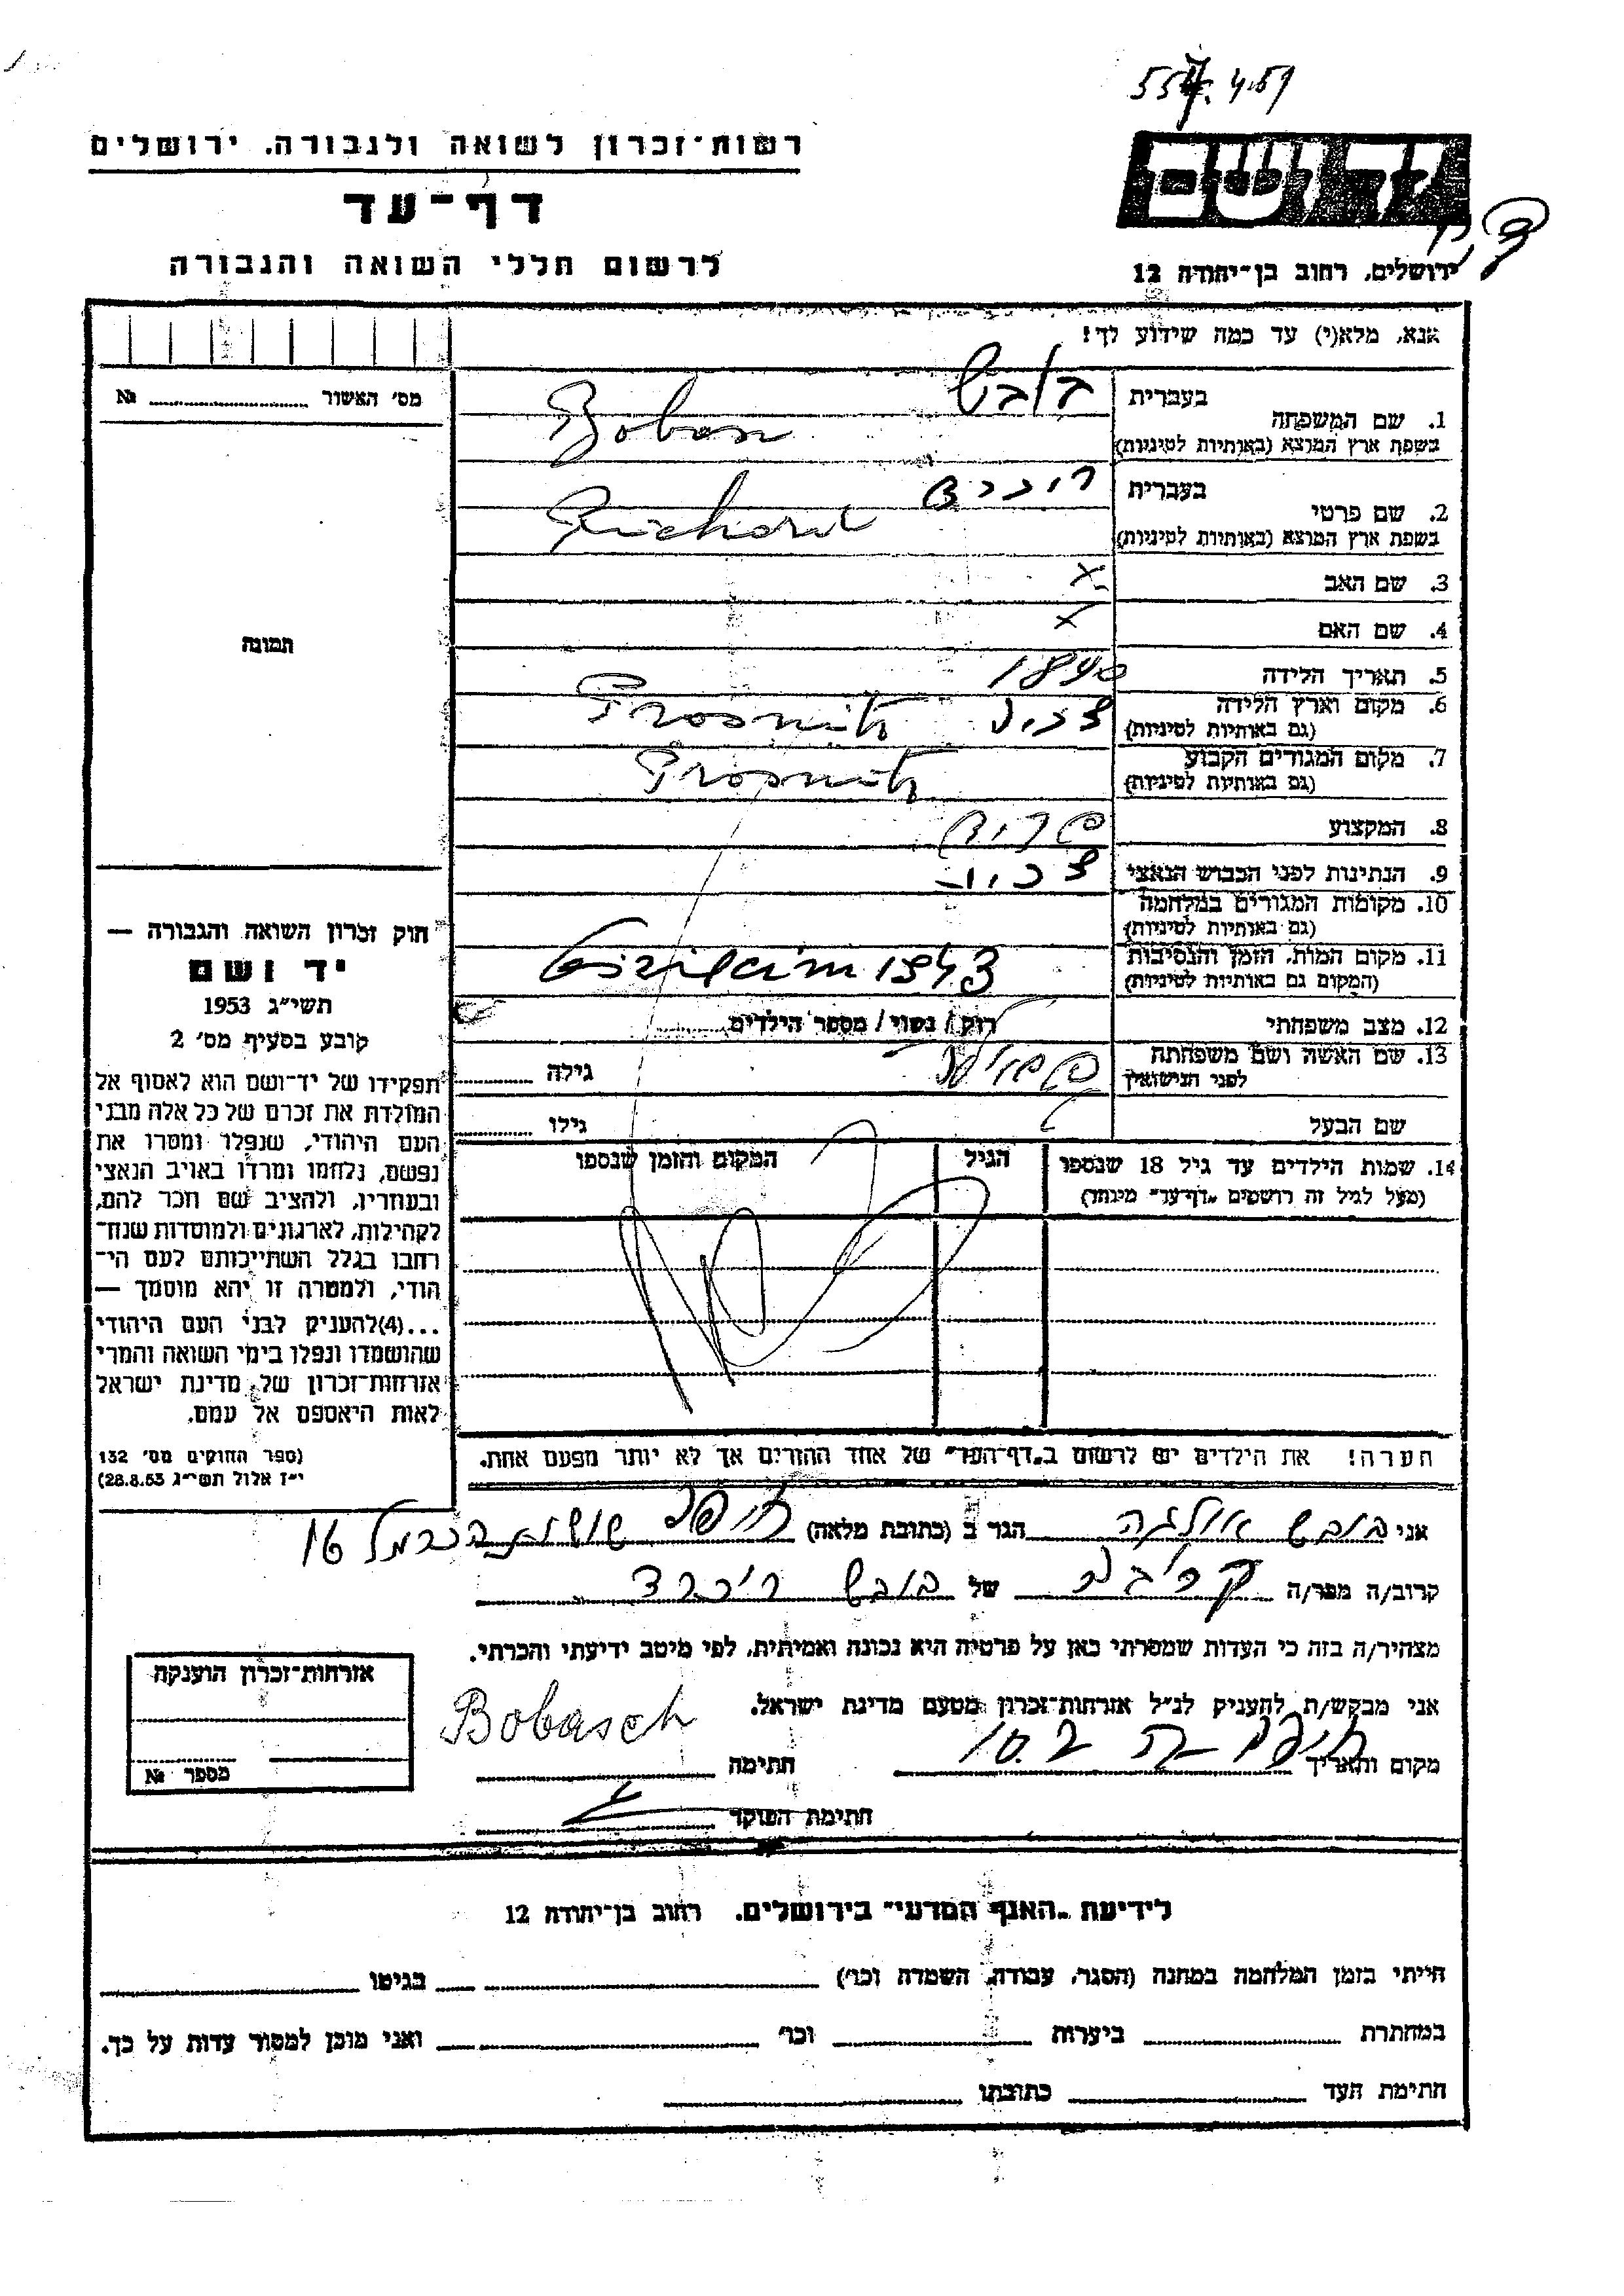 557. 4.59
רשות־זכרון לשואה ולגבורה. ירושלים
דף־עד
לרשום חללי השואה והגבורה
יד ושם
ירושלים, רחוב בן־יהודה 12
אנא, מלא(י) עד כמה שידוע לך!
מס׳ האשור № 
1. שם המשפחה
בעברית בובש
בשפת ארץ המוצא (באותיות לטיניות) Bobas
2. שם פרטי
בעברית
בשפת ארץ המוצא (באותיות לטיניות) Richard
3. שם האב x
4. שם האם x
תמונה
5. תאריך הלידה 1890
6. מקום וארץ הלידה
(גם באותיות לטיניות) צכיה Prosnitz
7. מקום המגורים הקבוע
(גם באותיות לטיניות) Prosnitz
8. המקצוע
9. הנתינות לפני הכבוש הנאצי
10. מקומות המגורים במלחמה
(גם באותיות לטיניות)
11. מקום המות, הזמן והנסיבות
(המקום גם באותיות לטיניות) 1943
12. מצב משפחתי רוק / נשוי / מספר הילדים
13. שם האשה ושם משפחתה
לפני הנישואין גילה
שם הבעל גילו
14. שמות הילדים עד גיל 18 שנספו הגיל המקום והזמן שנספו
(מעל לגיל זה רושמים „דף־עד״ מיוחד)
הערה! את הילדים יש לרשום ב„דף־העד״ של אחד ההורים אך לא יותר מפעם אחת.
חוק זכרון השואה והגבורה —
יד ושם
תשי״ג 1953
קובע בסעיף מס׳ 2
תפקידו של יד־ושם הוא לאסוף אל
המולדת את זכרם של כל אלה מבני
העם היהודי, שנפלו ומסרו את
נפשם, נלחמו ומרדו באויב הנאצי
ובעוזריו, ולהציב שם וזכר להם,
לקהילות, לארגונים ולמוסדות שנח־
רבו בגלל השתייכותם לעם הי־
הודי, ולמטרה זו יהא מוסמך —
...(4)להעניק לבני העם היהודי
שהושמדו ונפלו בימי השואה והמרי
אזרחות־זכרון של מדינת ישראל
לאות היאספם אל עמם.
(ספר החוקים מס׳ 132
י״ז אלול תשי״ג 28.8.53)
אני בובש אולגה הגר ב (כתובת מלאה) חיפה שושנת הכרמל 16
קרוב/ה מכר/ה קרובה של בובש ריכרד
מצהיר/ה בזה כי העדות שמסרתי כאן על פרטיה היא נכונה ואמיתית, לפי מיטב ידיעתי והכרתי.
אני מבקש/ת להעניק לנ״ל אזרחות־זכרון מטעם מדינת ישראל.
מקום ותאריך חיפה 10.2 חתימה Bobasch
חתימת הפוקד
אזרחות־זכרון הוענקה
מספר №
לידיעת „האגף המדעי״ בירושלים. רחוב בן־יהודה 12
הייתי בזמן המלחמה במחנה (הסגר, עבודה, השמדה וכו׳) בגיטו
במחתרת ביערות וכו׳ ואני מוכן למסור עדות על כך.
חתימת העד כתובתו